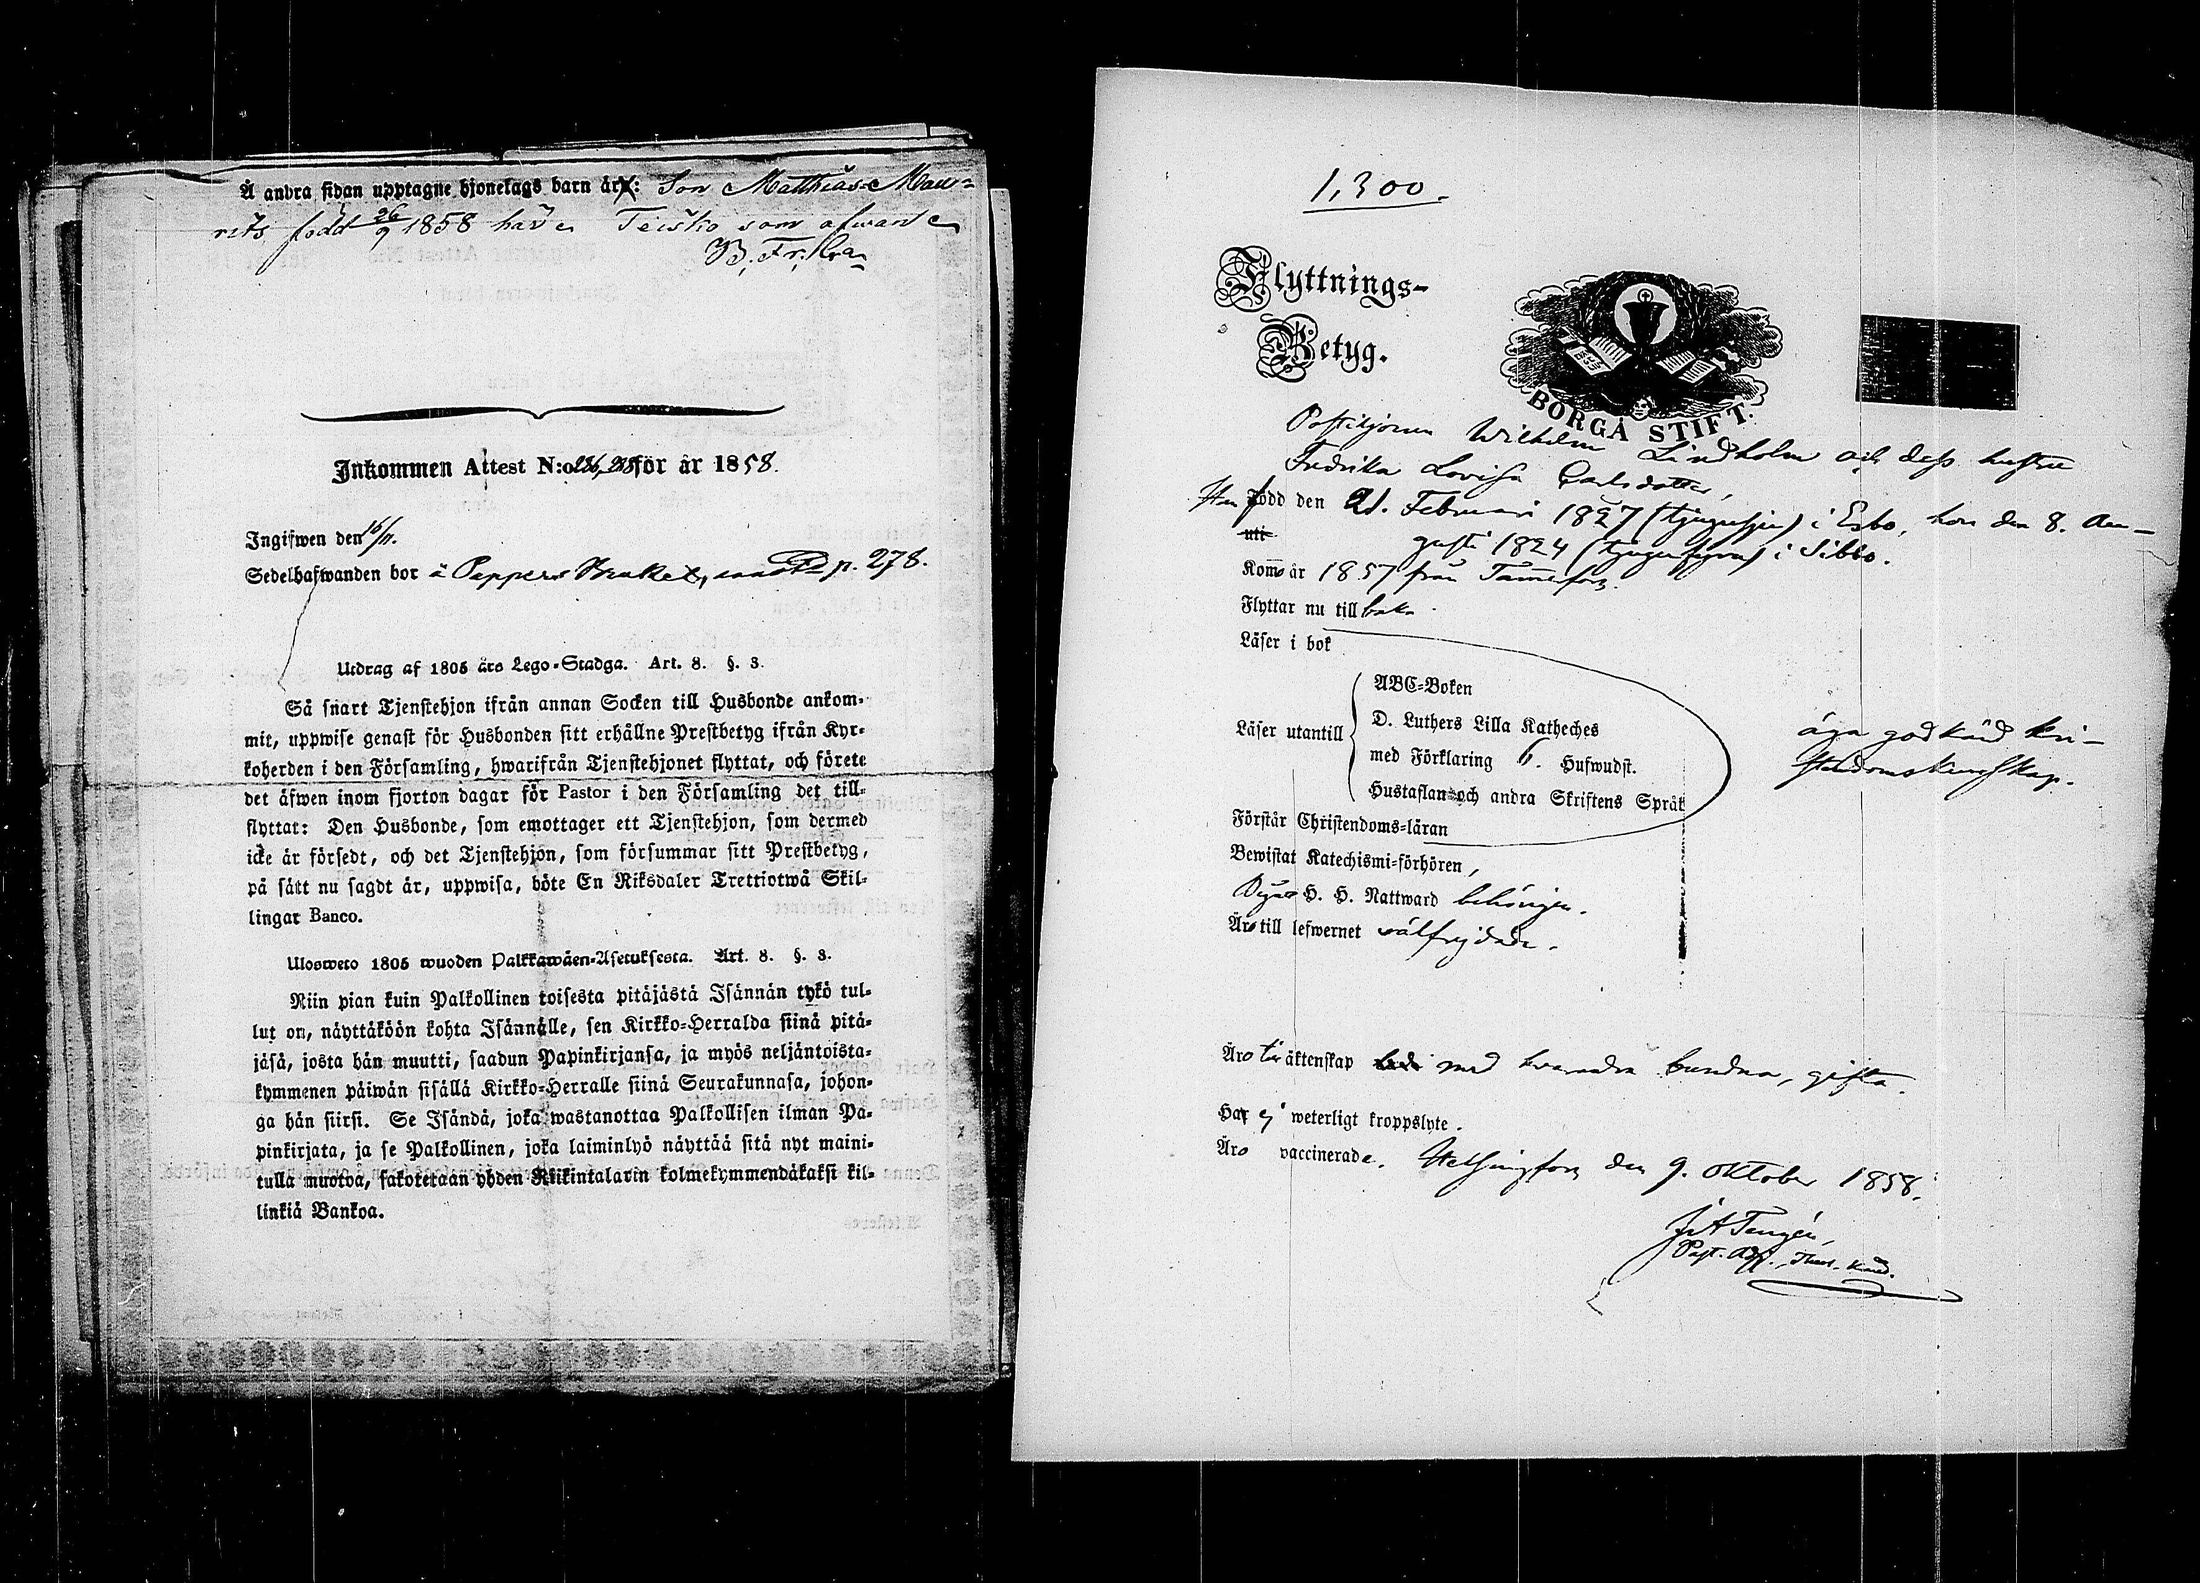 Å andra sidan upptagne hjonelags barn är: Son Matthias Mau-
rits född 26/9 1858 har i Teisko som ofvan
B. Fr.
Inkommen Attest N:o 236, för år 1858.
Ingifwen den 16/11.
Sedelhafwanden bor å Peppers p. 278.
Utdrag af 1805 års Lego-Stadga. Art. 8. §. 3.
Så snart Tjenstehjon ifrån annan Socken till Husbonde ankom-
mit, uppwise genast för Husbonden sitt erhållne Prestbetyg ifrån Kyr-
koherden i den Församling, hwarifrån Tjenstehjonet flyttat, och förete
det äfwen inom fjorton dagar för Pastor i den Församling det till-
flyttat: Den Husbonde, som emottager ett Tjenstehjon, som dermed
icke är försedt, och det Tjenstehjon, som försummar sitt Prestbetyg,
på sätt nu sagdt är, uppwisa, böte En Riksdaler Trettiotwå Skil-
lingar Banco.
Ulosweto 1805 wuoden Palkkawäen-Asetuksesta. Art. 8. §. 3.
Niin pian kuin Palkollinen toisesta pitäjästä Isännän tykö tul-
lut on, näyttäköön kohta Isännälle, sen Kirkko-Herralda siinä pitä-
jäsä, josta hän muutti, saadun Papinkirjansa, ja myös neljäntoista-
kymmenen päiwän sisällä Kirkko-Herralle siinä Seurakunnasa, johon-
ga hän siirsi. Se Isändä, joka wastanottaa Palkollisen ilman Pa-
pinkirjata, ja se Palkollinen, joka laiminlyö näyttää sitä nyt maini-
tulla muotoa, sakotetaan yhden Riikintalarin kolmekymmendäkaksi kil-
linkiä Bankoa.
1,300.
Flyttnings-
Betyg.
BORGÅ STIFT.
Postiljonen Wilhelm Lindholm och dess hustru
Fredrika Lovisa Carlsdotter,
Han född den 21. Februari 1827 (tjugusju) i Esbo, hon den 8. Au-
uti gusti 1824 (tjugufyra) i Sibbo.
Kommo år 1857 från Tammerfors.
Flyttar nu tillbaka.
Läser i bok
Läser utantill
ABC-Boken
D. Luthers Lilla Katheches
med Förklaring 6. Hufwudst.
Hustaflan och andra Skriftens Språk
äga godkänd kri-
stendomskunskap.
Förstår Christendoms-läran
Bewistat Katechismi-förhören,
Begått H. H. Nattward behörigen.
Äro till lefwernet välfrejdade.
Äro till äktenskap med hvarandra bundna, gifta.
Har ej weterligt kroppslyte.
Äro vaccinerade. Helsingfors den 9. Oktober 1858.
Tengén,
Past. Adj.